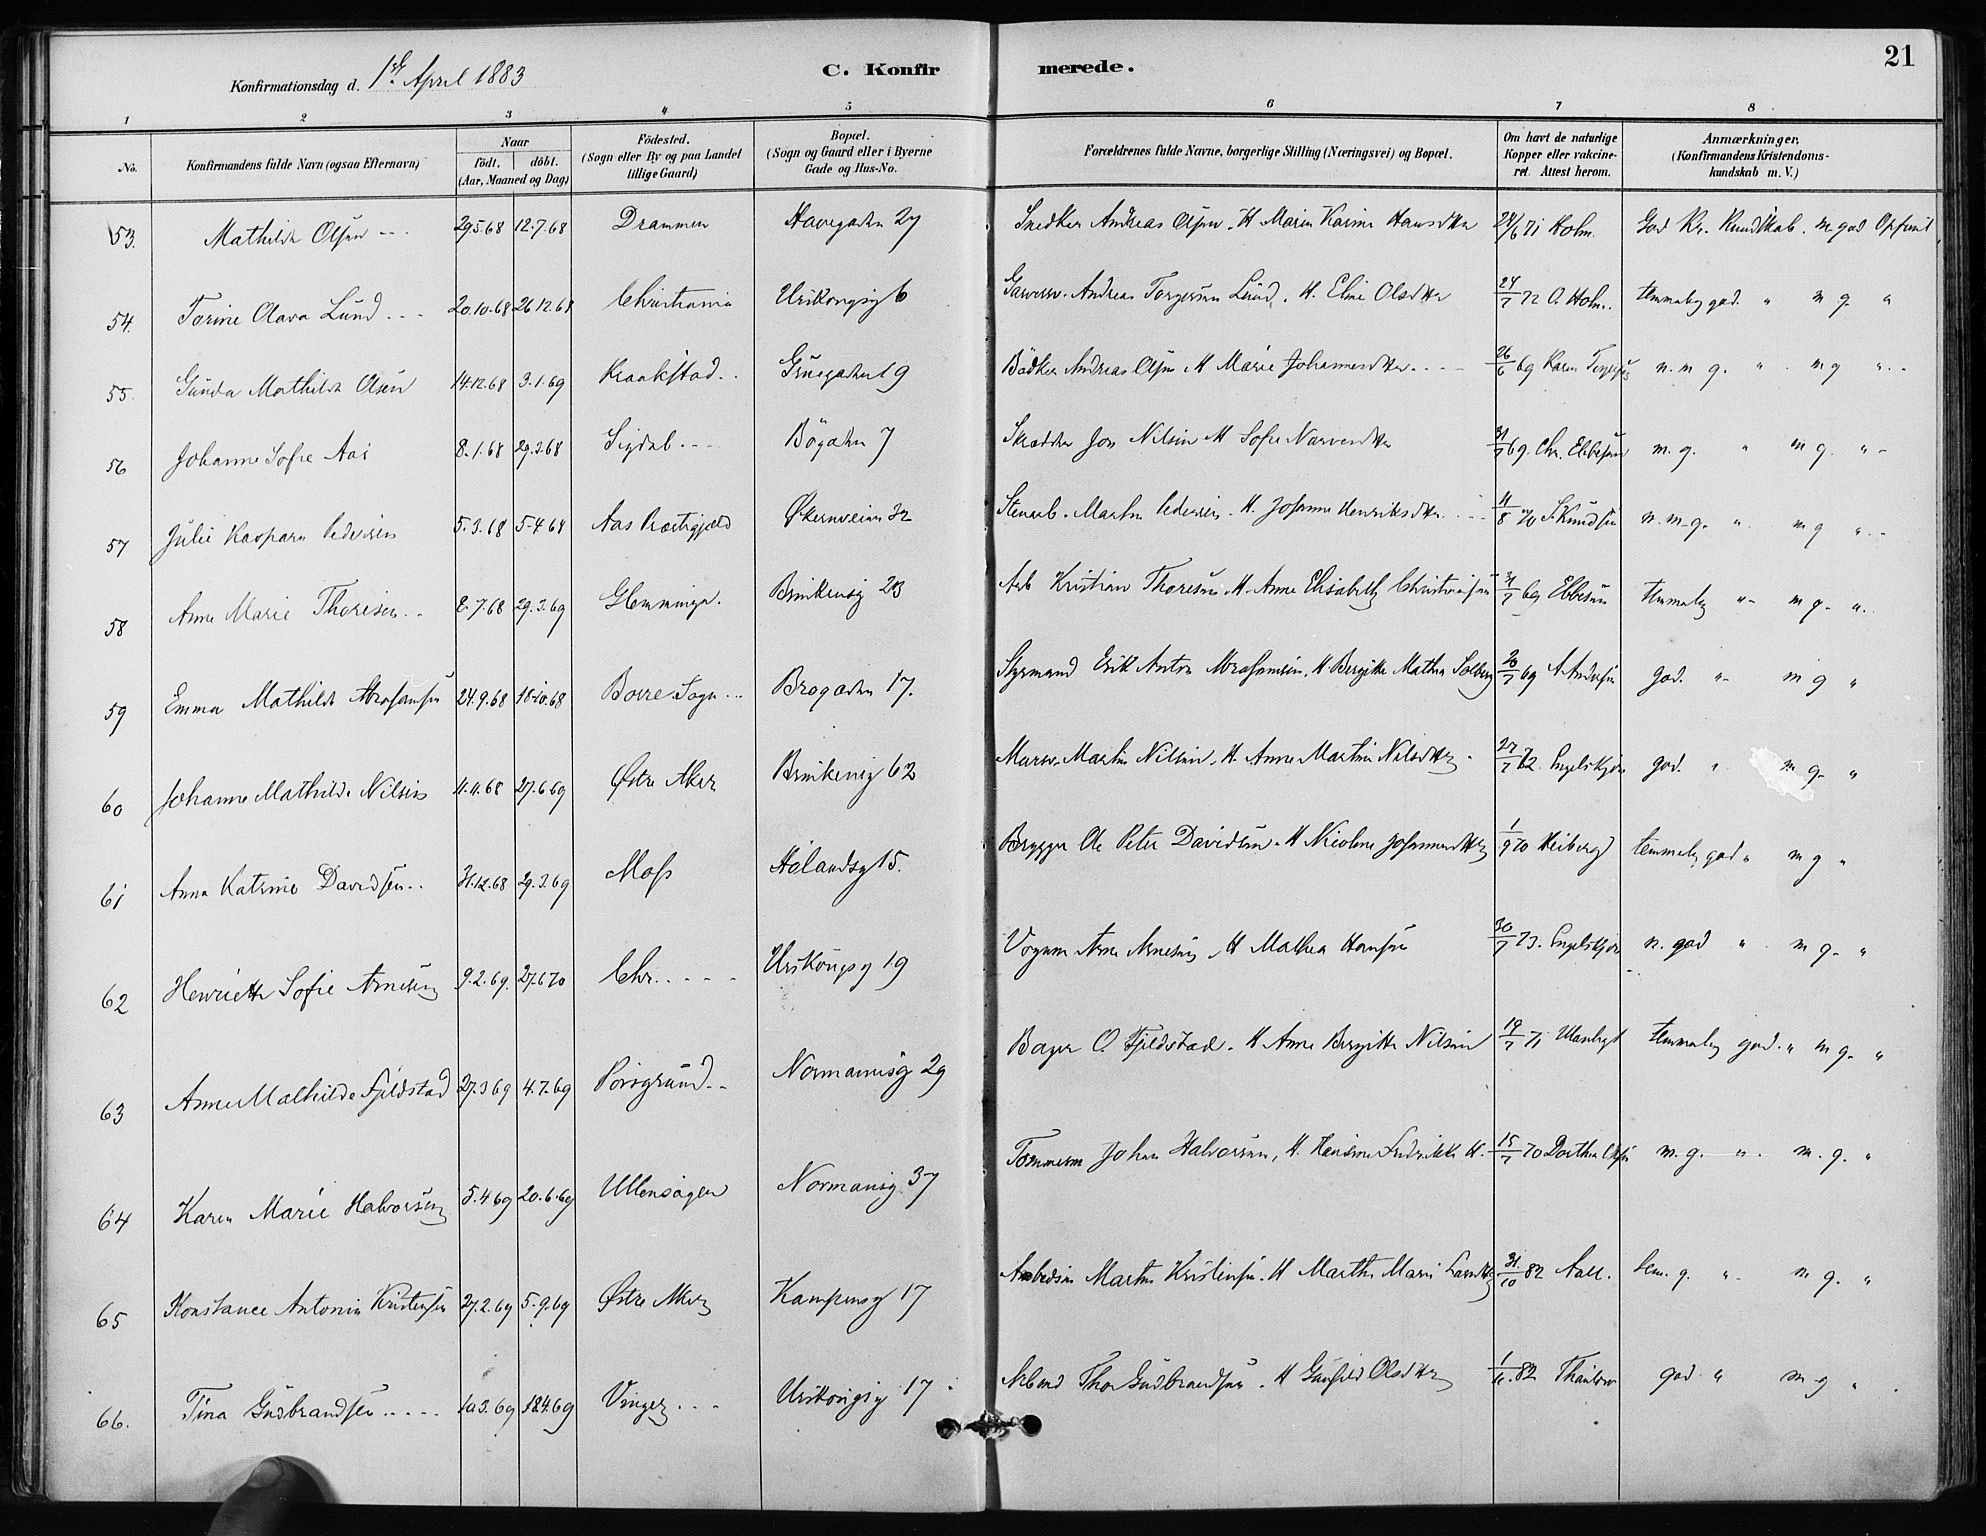 21
Konfirmationsdag d. 1ste April 1883
C. Konfirmerede.
1 2 3 4 5 6 7 8
No. Konfirmandens fulde Navn (ogsaa Efternavn) Naar födt. döbt. (Aar, Maaned og Dag) Födested. (Sogn eller By og paa Landet tillige Gaard) Bopæl. (Sogn og Gaard eller i Byerne Gade og Hus-No. Forældrenes fulde Navne, borgerlige Stilling (Næringsvei) og Bopæl. Om havt de naturlige Kopper eller vakcineret. Attest herom. Anmærkninger, (Konfirmandens Kristendomskundskab m. V.)
53. Mathilde Olsen 29.5.68 12.7.68 Drammen Havegaden 27 Snedker Andreas Olsen. H. Maren Karine Hansdtter 24/6 71 Holm. God Kr. Kundskab. m. god Opførsel
54. Torine Olava Lund 20.10.68 26.12.68 Christiania Urtkongsg 6 Andreas Torgersen Lund. H. Eline Olsdtter 24/7 72 O. Holm. temmelig god. " m g. "
55. Gunda Mathilde Olsen 14.12.68 3.1.69 Kraakstad Gruegaden 19 Bödker Andreas Olsen H Marie Johannesdtter 26/6 69 Karen n. m g. " m g "
56 Johanne Sofie Aas 8.1.68 29.3.68 Sigdal Bögaden 7 Skrædder Jon Nilsen H Sofie 31/7 69. Chr. Ebbesen m. g. " m g. "
57 Julie Kaspara Pedersen 5.3.68 5-4 68 Aas Præstegjeld Økernveien 32 Stenarb. Martin Pedersen. H. Johanne Henriksdtter 11/8 70 S. Knudsen n. m. g. " m g "
58 Anne Marie Thoresen 8.7.68 29.3.69 Glemminge. Brinkensg 23 Arb Kristian Thoresen H. Anne Elisabeth Christiansen 31/7 69 Ebbesen temmelig " m g. "
59 Emma Mathilde Abrahamsen 24.9.68 18.10.68 Borre Sogn Brogaden 17. Styrmand Erik Anton Abrahamsen. H Bergitte Mathea Solberg 20/7 69 A Andersen god. " m g "
60 Johanne Mathilde Nilsen 11.11.68 27.6.69 Østre Aker Brinkensg 62 Murer. Martin Nilsen. H. Anne Martine Nilsdtter 27/7 72. Engelskjön god. " m g. "
61 Anna Katrine Davidsen 31.12.68 29.3.69 Moss Hölandsg 15. Brygger Ole Peter Davidsen H Nicoline Johannesdtter 1/9 70 Heiberg temmelig god " m g "
62 Henriette Sofie Arnesen 9.2.69. 27.6.70 Chr. Urtkongsg 19 Vognm Arne Arnesen H Mathea Hansen 30/7 73. Engelskjön n. god " m g. "
63 Anne Mathilde Fjeldstad 27.3 69 4.7.69 Porsgrund Normannsg 29 Bager O. Fjeldstad. H Anne Bergitte Nilsen 19/7 71 temmelig god. " m g. "
64 Karen Marie Halvorsen 5.4 69 20.6.69 Ullensager Normansg 37 Tömmerm Johan Halvorsen, H. Fredrikke H. 15/7 70 Dorthea Olsen m. g. " m. g. "
65 Konstance Antonie Kristensen 27.2.69 5.9.69 Østre Aker Kampensg 17 Martin Kristensen. H Marthe Marie 31/10 82 Aall. tem. g. " m g. "
66. Tina Gudbrandsen 10.3.69 18.4.69 Vinger Urtkongsg 17 Arbmd Thor Gudbrandsen. H Gunhild Olsdtter 1/11 82 Thaulow god. " m g "